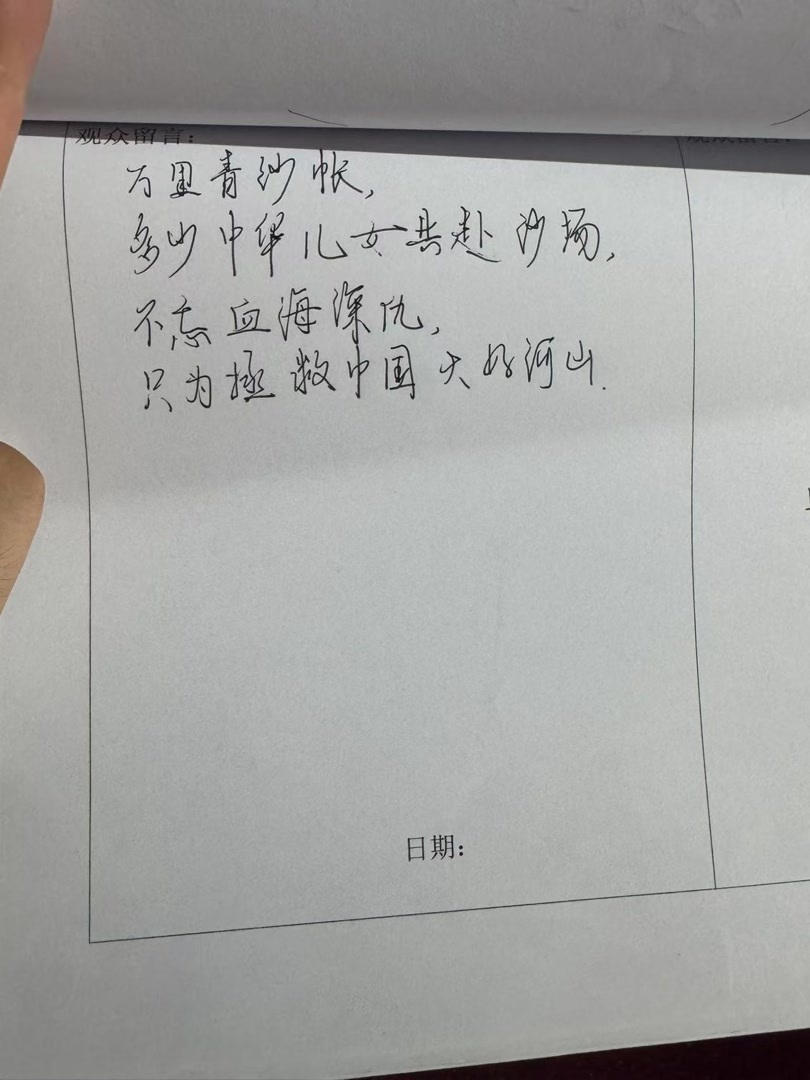 观众留言:
万里青纱帐,
多少中华儿女共赴沙场,
不忘血海深仇,
只为拯救中国大好河山.
日期: